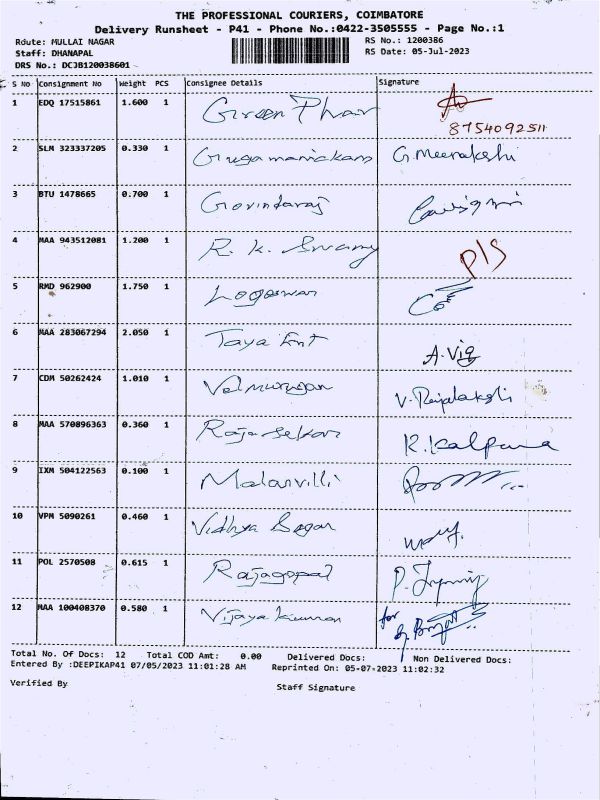 THE PROFESSIONAL COURIERS, COIMBATORE
Delivery Runsheet - P41 - Phone No.:0422-3505555 - Page No.:1
Rdute: MULLAI NAGAR RS No.: 1200386
Staff: DHANAPAL RS Date: 05-Jul-2023
DRS No.: DCJB120038601
S No Consignment No Weight PCS Consignee Details Signature
1 EDQ 17515861 1.600 1 Green
8754092511
2 SLM 323337205 0.330 1 Gugamanickam G. Meenakshi
3 BTU 1478665 0.700 1 Govindaraj
4 MAA 943512081 1.200 1 R. K. Swamy P/S
5 RMD 962900 1.750 1 Logeswan
6 MAA 283067294 2.050 1 Jaya Ent A. Vig
7 CDM 50262424 1.010 1 Velmurugan V. Rajalakshi
8 MAA 570896363 0.360 1 Rajasekar K. Kalpana
9 IXM 504122563 0.100 1 Malarvilli
10 VPM 5090261 0.460 1 Vidhya Sagar
11 POL 2570508 0.615 1 Rajagopal
12 MAA 100408370 0.580 1 Vijaya Kumar for
Total No. Of Docs: 12 Total COD Amt: 0.00 Delivered Docs: Non Delivered Docs:
Entered By :DEEPIKAP41 07/05/2023 11:01:28 AM Reprinted On: 05-07-2023 11:02:32
Verified By Staff Signature